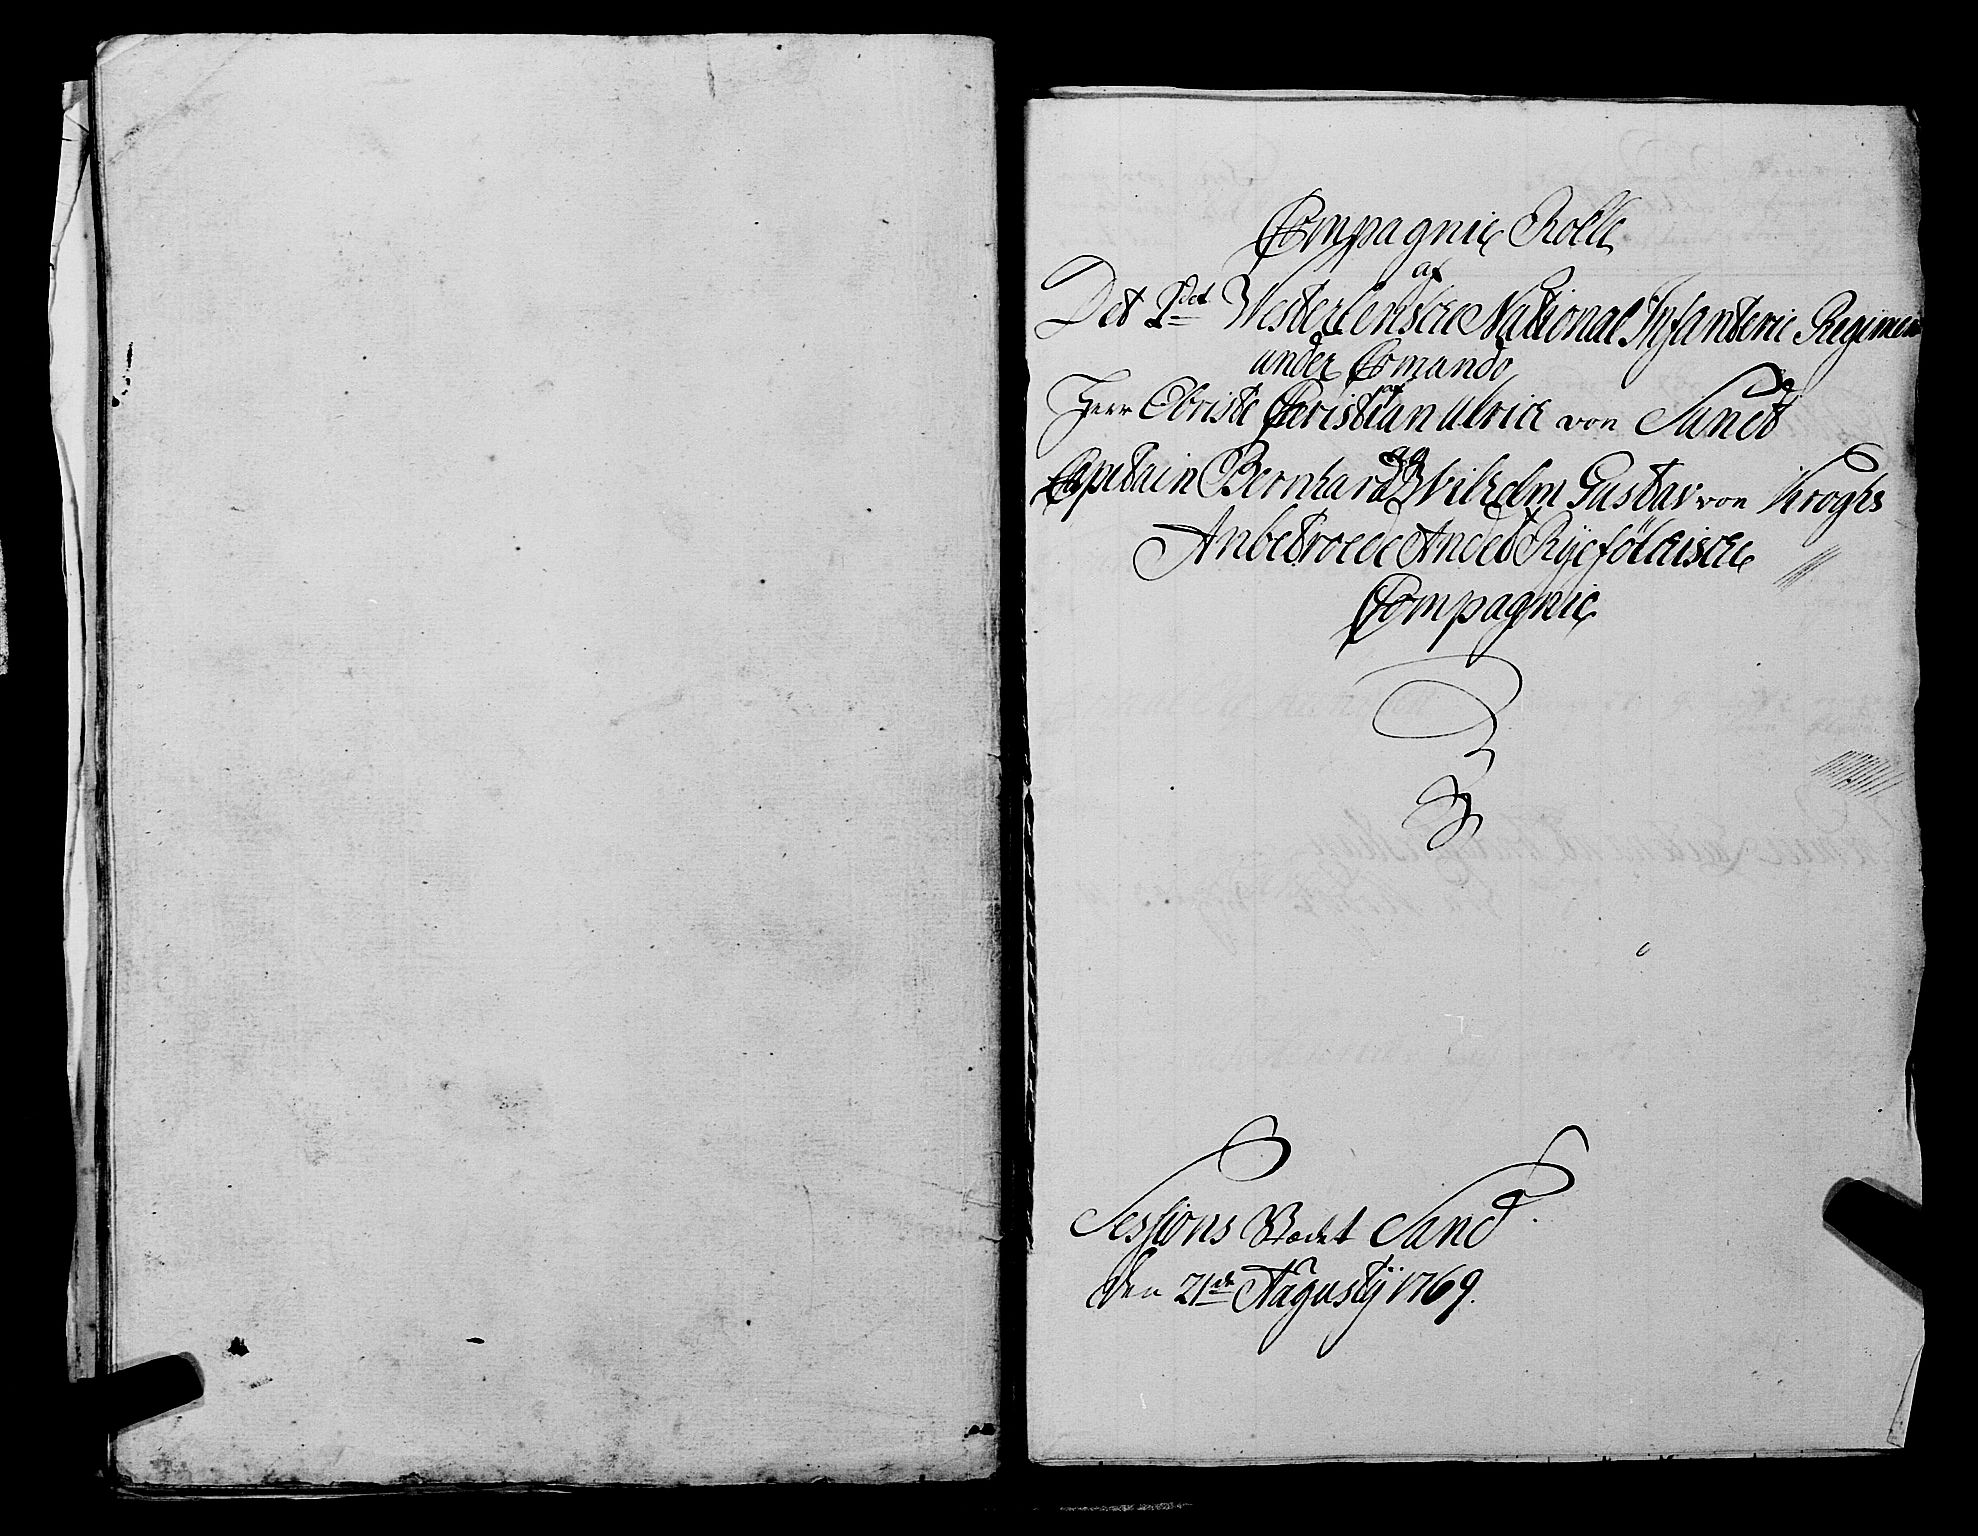 Compagnie Rolle
af
Det 2det Westerlenske National Infanterie Regiment
under Comando
af
Herr Obriste Christian Ulrick von Sundt
og
Capitain Bernhard Wilhelm Gustav von Kroghs
Anbetroede Andet Ryefölckiscke
Compagnie
Sessions Stædet Sand
den 21de Augustij 1769.